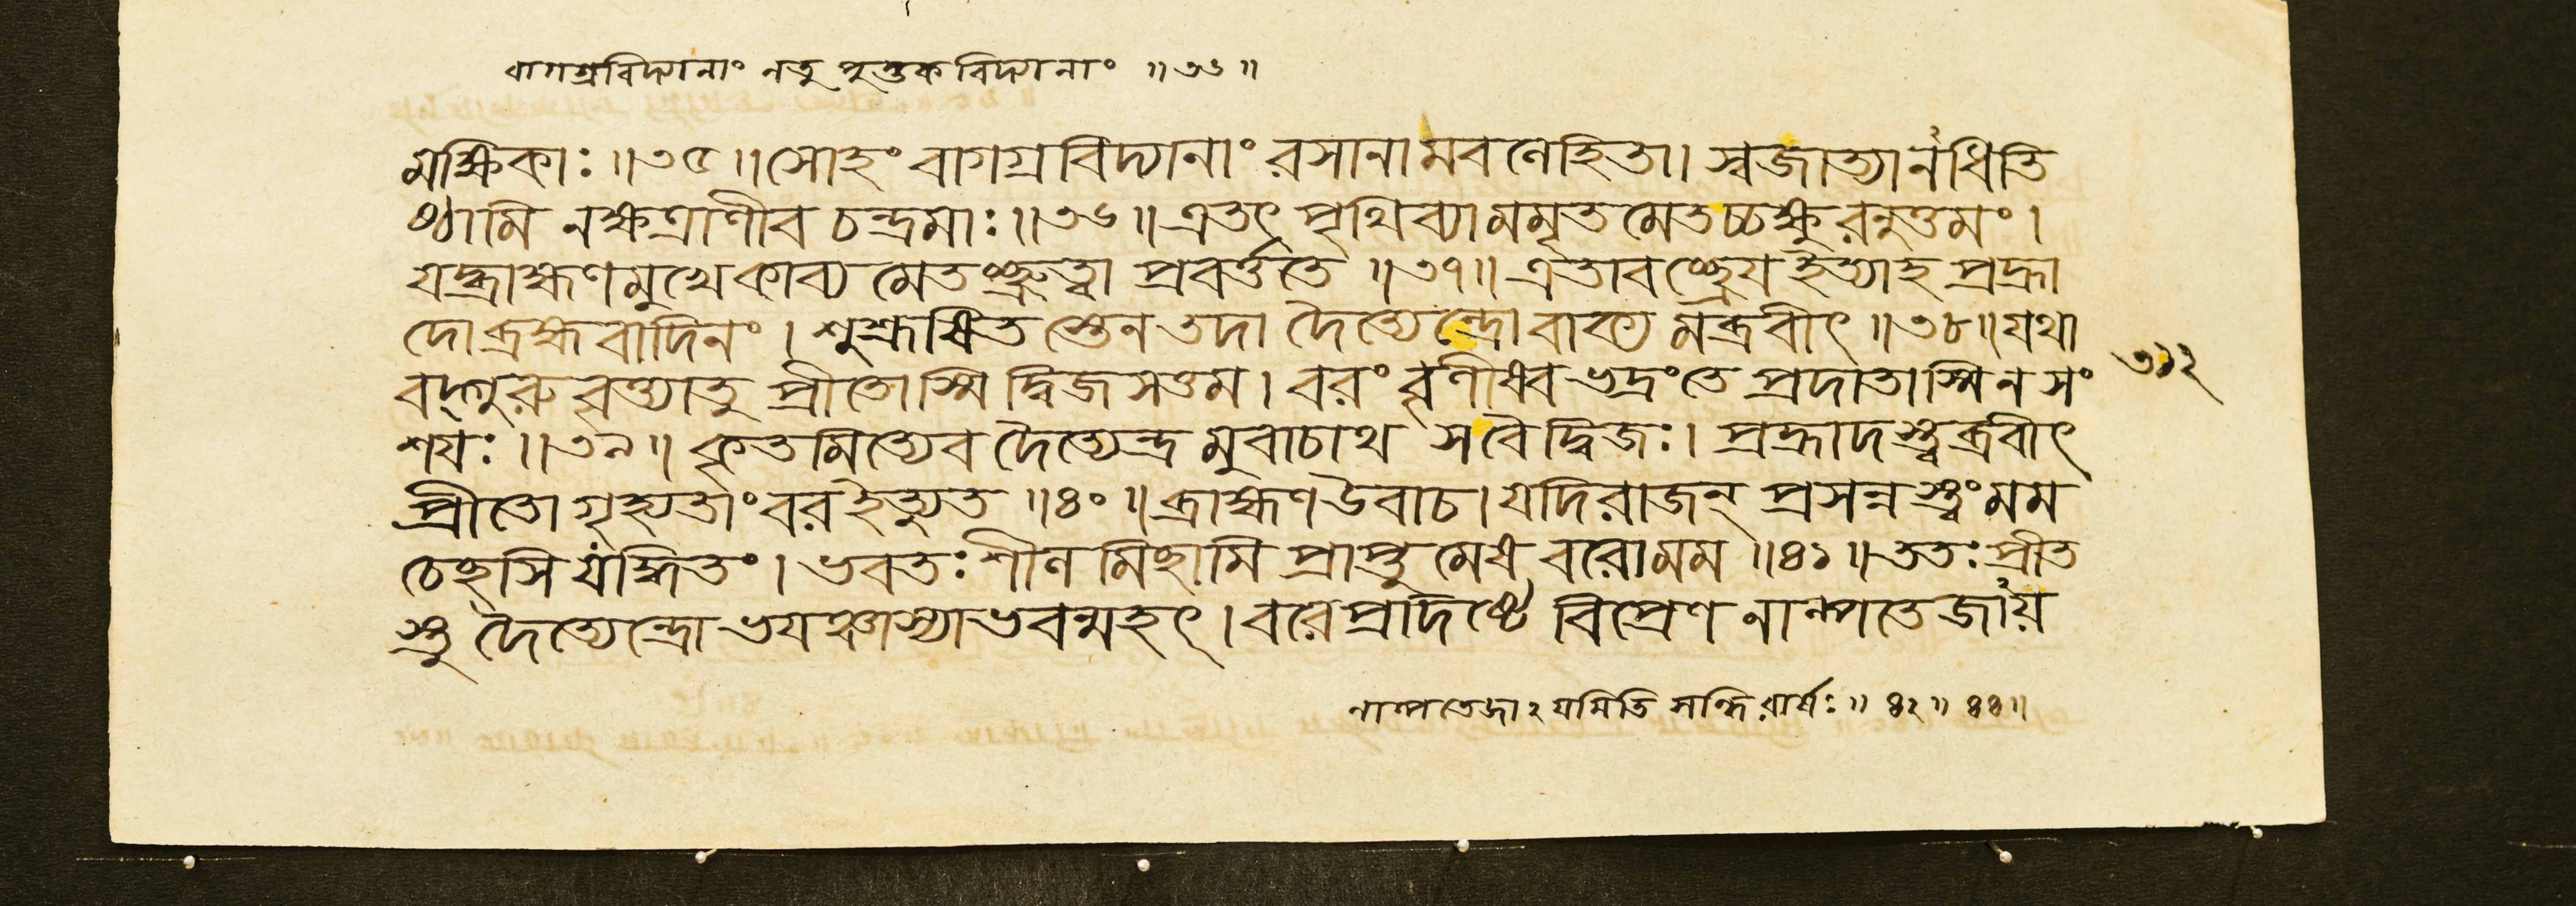 বাগগ্রবিদ্যানাং নতু পুস্তকবিদ্যানাং ॥৩৬॥
মক্ষিকাঃ ॥৩৫॥ সোহং বাগগ্রবিদ্যানাং রসানামবলেহিতা। স্বজাত্যানধিতি
ষ্ঠামি নক্ষত্রাণীব চন্দ্রমাঃ ॥৩৬॥ এতৎ পৃথিব্যামমৃতমেতচ্চক্ষুরনুত্তমং।
যদ্ব্রাহ্মণমুখে কাব্যমেতচ্ছ্রুত্বা প্রবর্ত্ততে ॥৩৭॥ এতাবচ্ছ্রেয় ইত্যাহ প্রহ্লা
দো ব্রহ্মবাদিনং। শুশ্রূষিতস্তেন তদা দৈত্যেন্দ্রো বাক্যমব্রবীৎ ॥৩৮॥ যথা
বদ্গুরুবৃত্ত্যা তু প্রীতোস্মি দ্বিজসত্তম। বরং বৃণীষ্ব ভদ্রং তে প্রদাতাস্মি ন সং
শয়ঃ ॥৩৯॥ কৃতমিত্যেব দৈত্যেন্দ্রমুবাচাথ স বৈ দ্বিজঃ। প্রহ্লাদস্ত্বব্রবীৎ
প্রীতো গৃহ্যতাং বর ইত্যুত ॥৪০॥ ব্রাহ্মণ উবাচ। যদি রাজন্ প্রসন্নস্ত্বং মম
চেচ্ছসি যদ্ধিতং। ভবতঃ শীলমিচ্ছামি প্রাপ্তুমেষ বরো মম ॥৪১॥ ততঃ প্রীত
স্তু দৈত্যেন্দ্রো ভয়ঞ্চাস্যাভবন্মহৎ। বরে প্রদিষ্টে বিপ্রেণ নাল্পতেজায়
নাল্পতেজা২ য়মিতি সন্ধিরার্ষঃ ॥৪২॥ ৪৪॥
৩১২